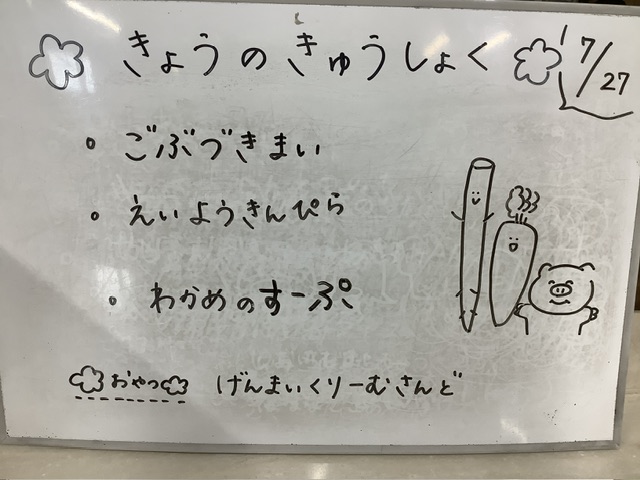 きょうのきゅうしょく 7/27
・ごぶづきまい
・えいようきんぴら
・わかめのすーぷ
おやつ げんまいくりーむさんど